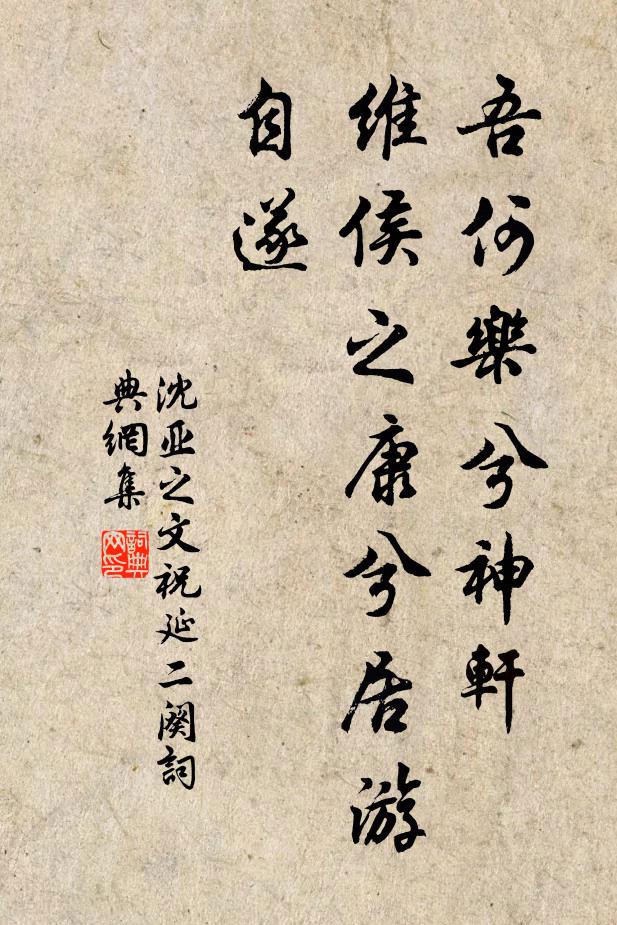 吾何樂兮神軒
維侯之康兮居游
自遂
沈亚之文祝延二阕詞
典網集
詞典
网印